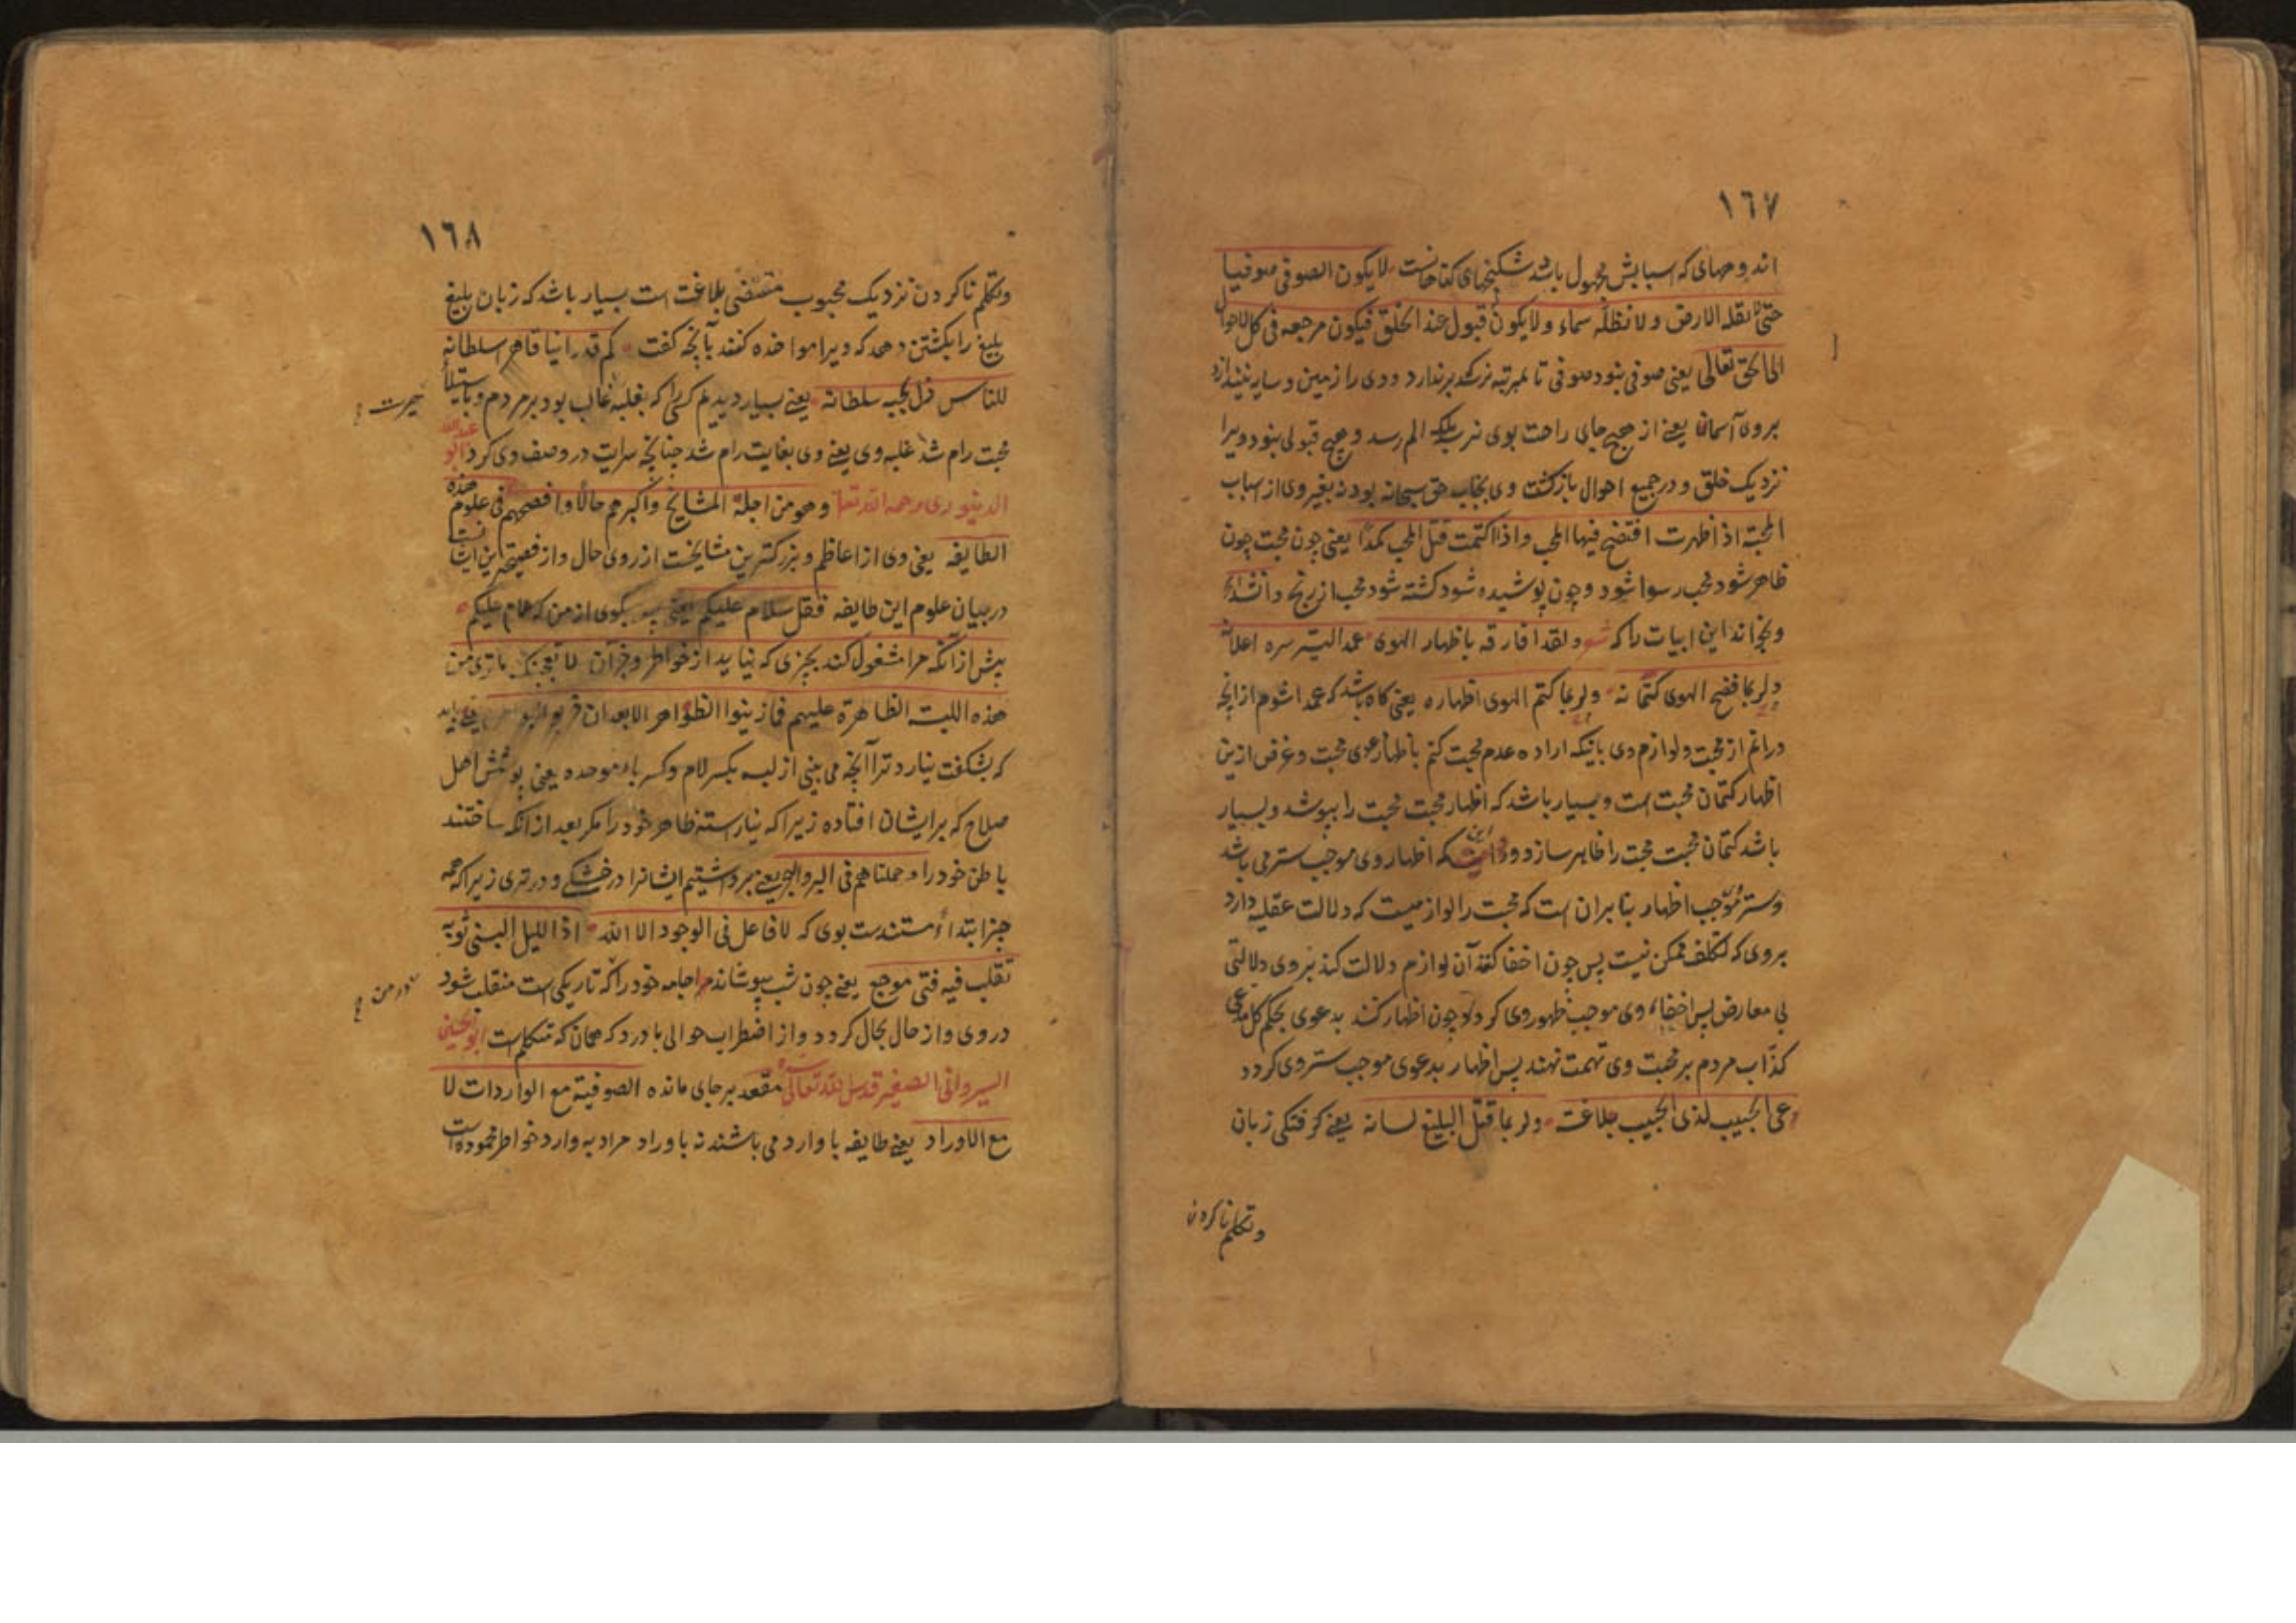 ١٦٧
اندوههای که اسبابش مجهول باشد شکنجهای کناهانست لا یکون الصوفی صوفیا
حتی لا تقله الارض ولا تظله سماء ولا یکون قبول عند الخلق فیکون مرجعه فی کل الاحوال
الی الحق تعالی یعنی صوفی نبود صوفی تا بمرتبه نرسد که برندارد وی را زمین و سایه نیندازد
بروی آسمان یعنی از هیچ جای راحت بوی نرسد بلکه الم رسد و هیچ قبولی نبود ویرا
نزدیک خلق و در جمیع احوال بازکشت وی بجناب حق سبحانه بود نه بغیر وی از اسباب
المحبة اذا ظهرت افتضح فیها المحب واذا کتمت قتل المحب کمدا یعنی چون محبت چون
ظاهر شود محب رسوا شود و چون پوشیده شود کشته شود محب از رنج و انشد
و بخواند این ابیات را که شعر ولقد افارقه باظهار الهوی عمدا لیستر سره اعلانه
ولربما فضح الهوی کتمانه ولربما کتم الهوی اظهاره یعنی کاه باشد که عمدا شوم از انچه
درانم از محبت و لوازم وی بانیکه اراده عدم محبت کنم باظهار دعوی محبت و غرض ازین
اظهار کتمان محبت است و بسیار باشد که اظهار محبت محبت را بپوشد و بسیار
باشد کتمان محبت محبت را ظاهر سازد و این که اظهار وی موجب ستر می باشد
و ستر موجب اظهار بنا بران است که محبت را لوازمیست که دلالت عقلیه دارد
بروی که تکلف ممکن نیست پس چون اخفا کند آن لوازم دلالت کند بروی دلالتی
بی معارض پس اخفاء وی موجب ظهور وی کردد و چون اظهار کند بدعوی بحکم کل مدعی
کذاب مردم بر محبت وی تهمت نهند پس اظهار بدعوی موجب ستر وی کردد
عی الحبیب لدی الحبیب بلاغة ولربما قتل البلیغ لسانه یعنی کرفتکی زبان
و تکلم ناکردن
١٦٨
و تکلم ناکردن نزدیک محبوب مقتضی بلاغت است بسیار باشد که زبان بلیغ
بلیغ را بکشتن دهد که ویرا مواخذه کنند بآنچه کفت کم قد راینا قاهر سلطانه
للناس ذل لحبه سلطانه یعنی بسیار دیدیم کسی را که بغلبه غالب بود بر مردم و باستیلا
محبت رام شد غلبه وی یعنی وی بغایت رام شد چنانچه سرایت در وصف وی کرد ابو عبدالله
الدینوری رحمه الله تعالی وهو من اجلة المشایخ واکبرهم حالا وافصحهم فی علوم هذه
الطایفه یعنی وی از اعاظم و بزرکترین مشایخست از روی حال و از فصیحترین ایشانست
در بیان علوم این طایفه فقل سلام علیکم یعنی پس بکوی از من که سلام علیکم
پیش از انکه مرا مشغول کند بچیزی که نیاید از خواطر و جز آن لا تعجبک ما تری من
هذه اللبسة الظاهرة علیهم فما زینوا الظواهر الا بعد ان خربوا البواطن یعنی باید
که بشکفت نیارد ترا آنچه می بینی از لبسه بکسر لام و کسر باء موحده یعنی پوشش اهل
صلاح که بر ایشان افتاده زیرا که نیاراستند ظاهر خود را مکر بعد از انکه ساختند
باطن خود را وحملناهم فی البر والبحر یعنی برداشتیم ایشانرا در خشکی و در تری زیرا که همه
جز ابتداء مستندست بوی که لا فاعل فی الوجود الا الله اذا اللیل البسنی ثوبه
تقلب فیه فتی موجع یعنی چون شب بپوشاند مرا جامه خود را که تاریکی است منقلب شود
در وی و از حال بحال کردد و از اضطراب حوالی با درد که همان که متکلم است ابو الحسین
السیروانی الصغیر قدس الله تعالی سره مقعد بر جای مانده الصوفیة مع الواردات لا
مع الاوراد یعنی طایفه با وارد می باشند نه باوراد مراد به وارد خواطر محموده است
حیرت
در من